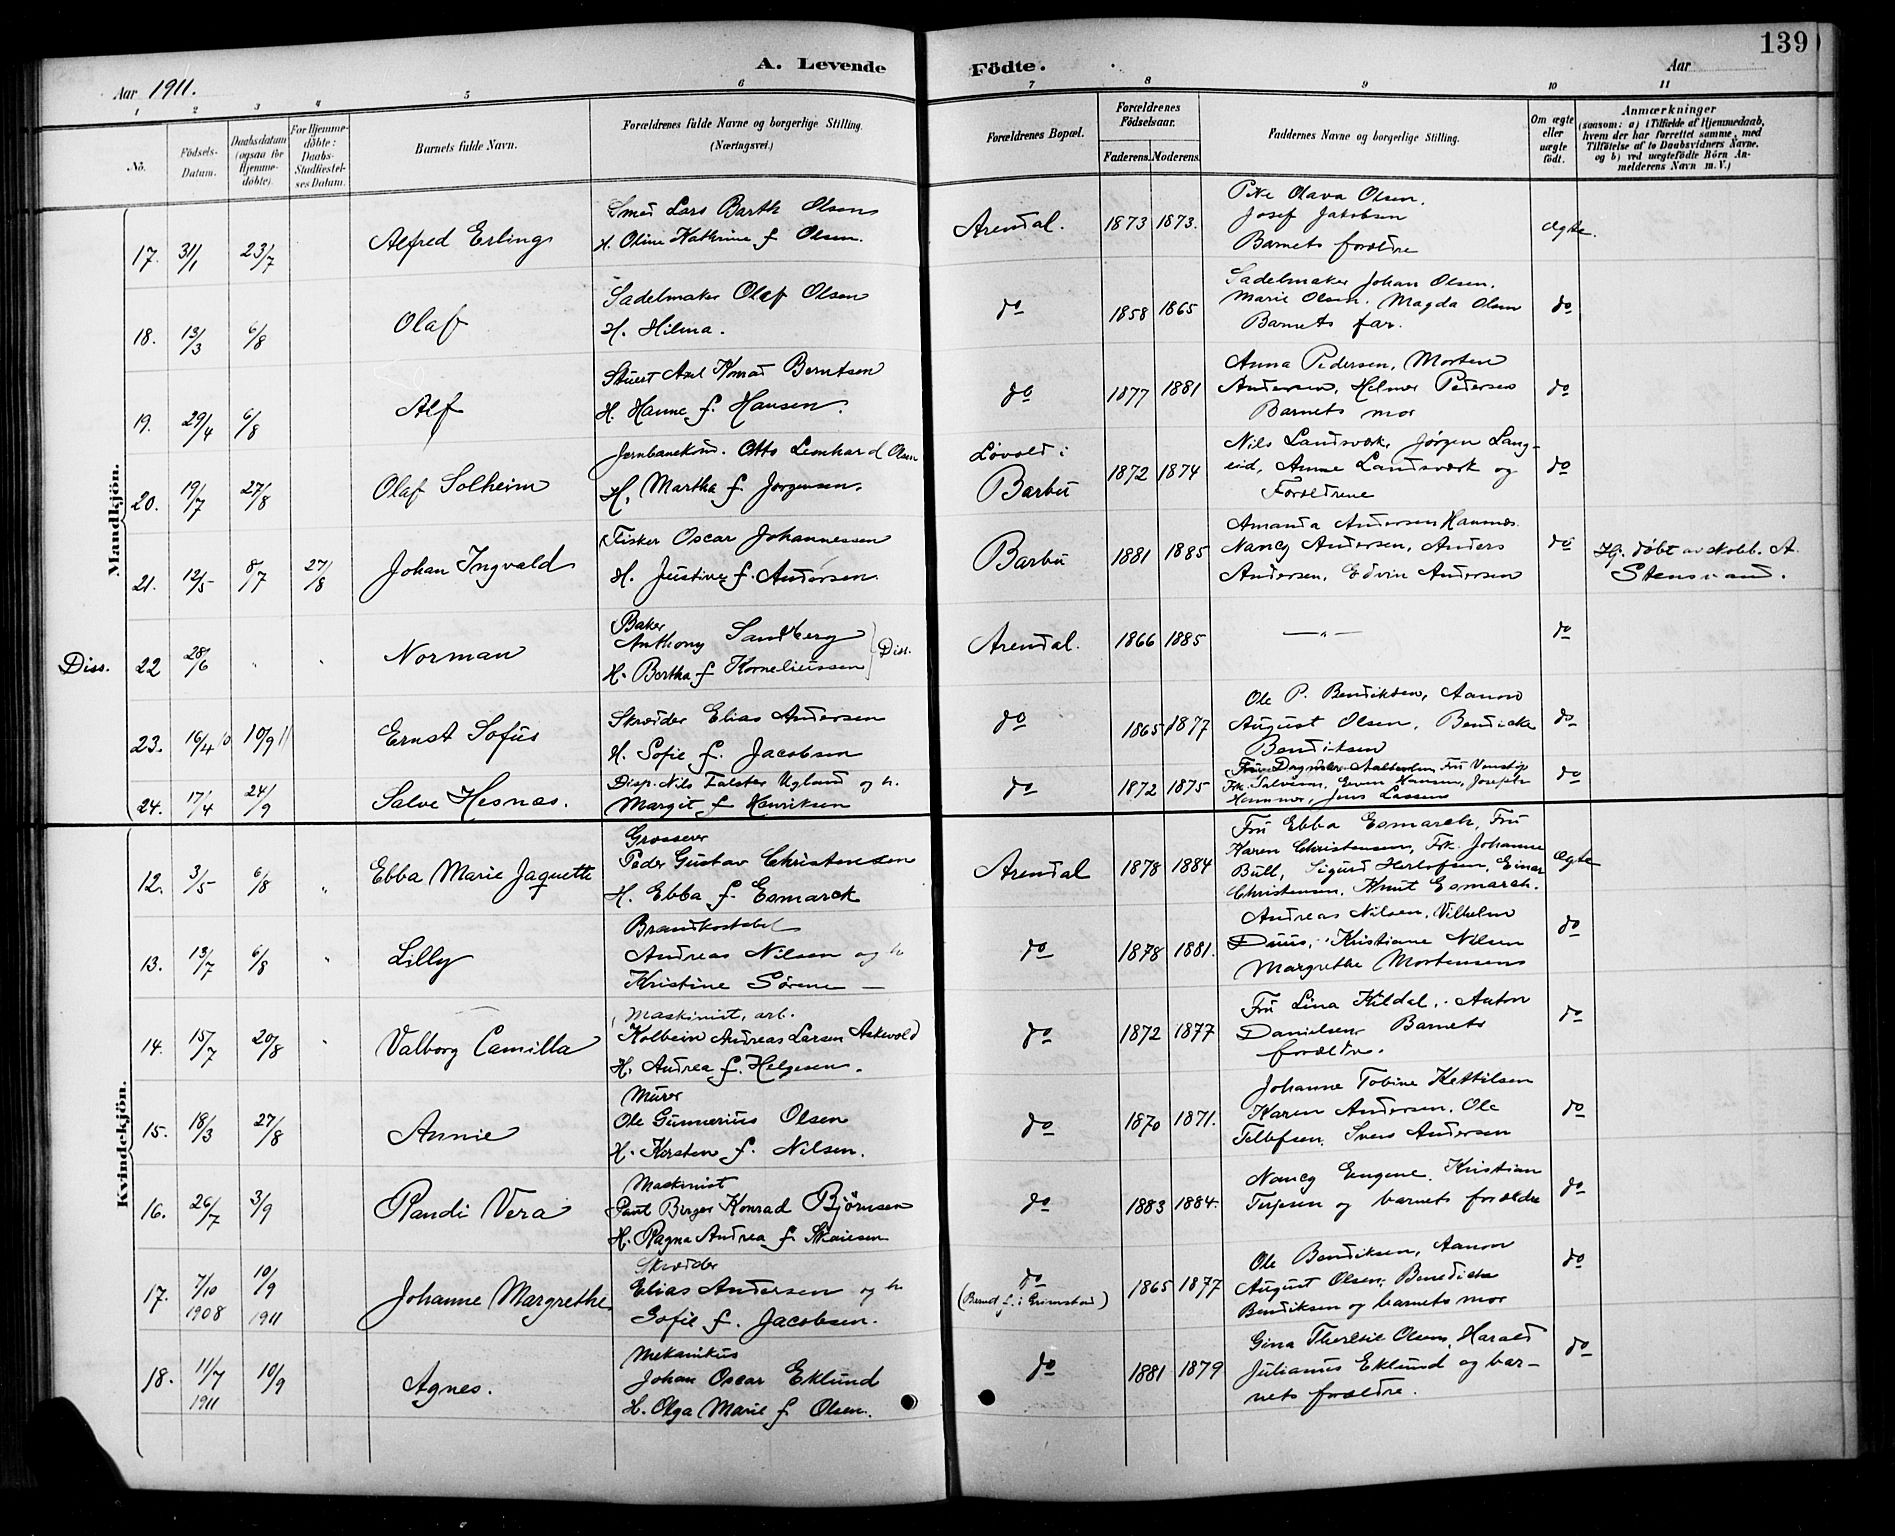 139
A. Levende Födte.
Aar 1911.
Aar
1 2 3 4 5 6 7 8 9 10 11
No.
Födsels-Datum.
Daabsdatum (ogsaa for Hjemme-döbte).
For Hjemme-döbte: Daabs-Stadfæstel-ses Datum.
Barnets fulde Navn.
Forældrenes fulde Navne og borgerlige Stilling.
(Næringsvei.)
Forældrenes Bopæl.
Forældrenes Födselsaar.
Faderens. Moderens.
Faddernes Navne og borgerlige Stilling.
Om ægte eller uægte födt.
Anmærkninger
(saasom: a) i Tilfælde af Hjemmedaab, hvem der har forrettet samme, med Tilföielse af to Daabsvidners Navne, og b) ved uægtefödte Börn Anmelderens Navn m.V.)
Mandkjön.
17. 31/1 23/7 Alfred Erling
Smed Lars Barth Olsen
H. Oline Kathrine f. Olsen.
Arendal. 1873 1873.
Pike Olava Olsen.
Josef Jakobsen
Barnets forældre
ægte.
18. 13/3 6/8 Olaf
Sadelmaker Olaf Olsen
H. Hilma.
do 1858 1865
Sadelmaker Johan Olsen.
Marie Olsen. Magda Olsen
Barnets far.
do
19. 29/4 6/8 Alf
Stuert Axel Konrad Berntsen
H. Hanne f. Hansen.
do 1877 1881
Anna Pedersen, Morten
Andersen, Helmer Pedersen
Barnets mor
do
20. 19/7 27/8 Olaf Solheim
Jernbanekond. Otto Leonhard Olsen
H. Martha f. Jørgensen.
Løvold i
Barbu
1872 1874
Nils Landsværk, Jørgen Lang-
eid, Anne Landsværk og
Forældrene
do
21. 12/5 8/7 27/8 Johan Ingvald
Fisker Oscar Johannessen
H. Justine f. Andersen.
Barbu 1881 1885
Amanda Andersen Hannæs
Nancy Andersen, Anders
Andersen, Edvin Andersen
do
Hj. døbt av skolb. A.
Diss. 22 28/6 " " Norman
Baker
Anthony Sandberg
H. Bertha f. Korneliussen
Diss.
Arendal. 1866 1885 — " — do
23. 16/4 10 10/9 11 Ernst Sofus
Skræder Elias Andersen
H. Sofie f. Jacobsen
do 1865 1877
Ole P. Bendiksen, Aanon
August Olsen, Bendicte
Bendiksen
do
24. 17/4 24/9 Salve Hesnæs.
Disp. Nils Falster Ugland og h.
Margit f. Henriksen
do 1872 1875
Hammer, Jens Lassen
do
Kvindekjön.
12. 3/5 6/8 " Ebba Marie Jaquette
Grosserer
Peder Gustav Christensen
H. Ebba f. Esmarck
Arendal 1878 1884
Fru Ebba Esmarch, Fru
Karen Christensen, Frk. Johanne
Bull, Sigurd Herlofsen, Einar
Christensen, Knut Esmarch.
ægte
13. 13/7 6/8 " Lilly
Brandkostabel
Andreas Nilsen og h
Kristine Sørene —
do 1878 1881.
Andreas Nilsen, Vilhelm
Duus, Kristiane Nilsen
Margrethe Mortensens
do
14. 15/7 20/8 " Valborg Camilla
Maskinist, arb.
Kolbein Andreas Larsen Askevold
H. Andrea f. Helgesen.
do 1872 1877
Fru Lina Kildal, Anton
Danielsen, Barnets
forældre.
do
15. 18/3 27/8 Annie
Murer
Ole Gunnerius Olsen
H. Kirsten f. Nilsen.
do 1870 1871.
Johanne Tobine Kettilsen
Karen Andersen. Ole
Tellefsen, Sven Andersen
do
16. 26/7 3/9 Randi Vera
Maskinist
Paul Birger Konrad Bjørnsen
H. Ragna Andrea f.
do 1883 1884.
Nancy Eugene, Kristian
Terjesen og barnets forældre
do
17. 7/10 1908 10/9 1911 Johanne Margrethe
Skræder
Elias Andersen og h
Sofie f. Jacobsen.
do
(Barnet f. i Grimstad)
1865 1877
Ole Bendiksen, Aanon
August Olsen, Benedicte
Bendiksen og barnets mor
do
18. 11/7 1911 10/9 Agnes.
Mekanikus
Johan Oscar Eklund
H. Olga Marie f. Olsen.
do 1881 1879
Gina Olsen, Harald
Julianus Eklund og bar-
nets forældre.
do